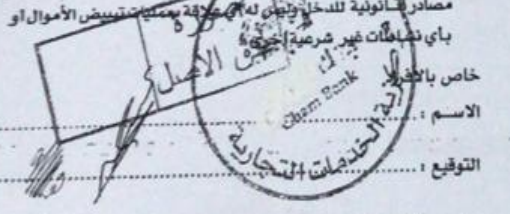 مصادر قانونية للدخل وليس له أي علاقة بعمليات تبييض الأموال أو
بأي نشاطات غير شرعية أخرى.
خاص بالأفراد
الاسم :
التوقيع :
طبق الأصل
Cham Bank
الخدمات التجارية